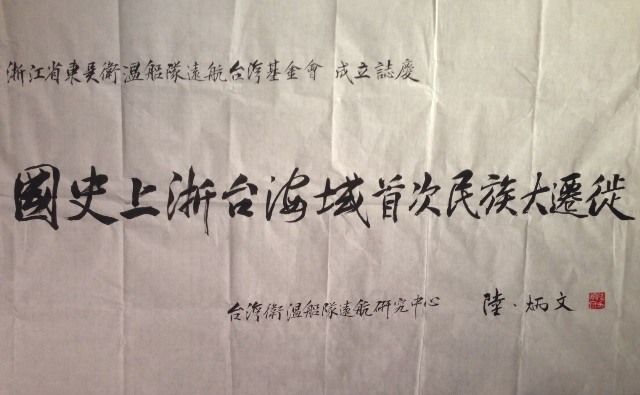 浙江省東吳衛溫船隊遠航台湾基金會 成立誌慶
國史上浙台海域首次民族大遷徙
台湾衛溫船隊遠航研究中心 陸·炳文